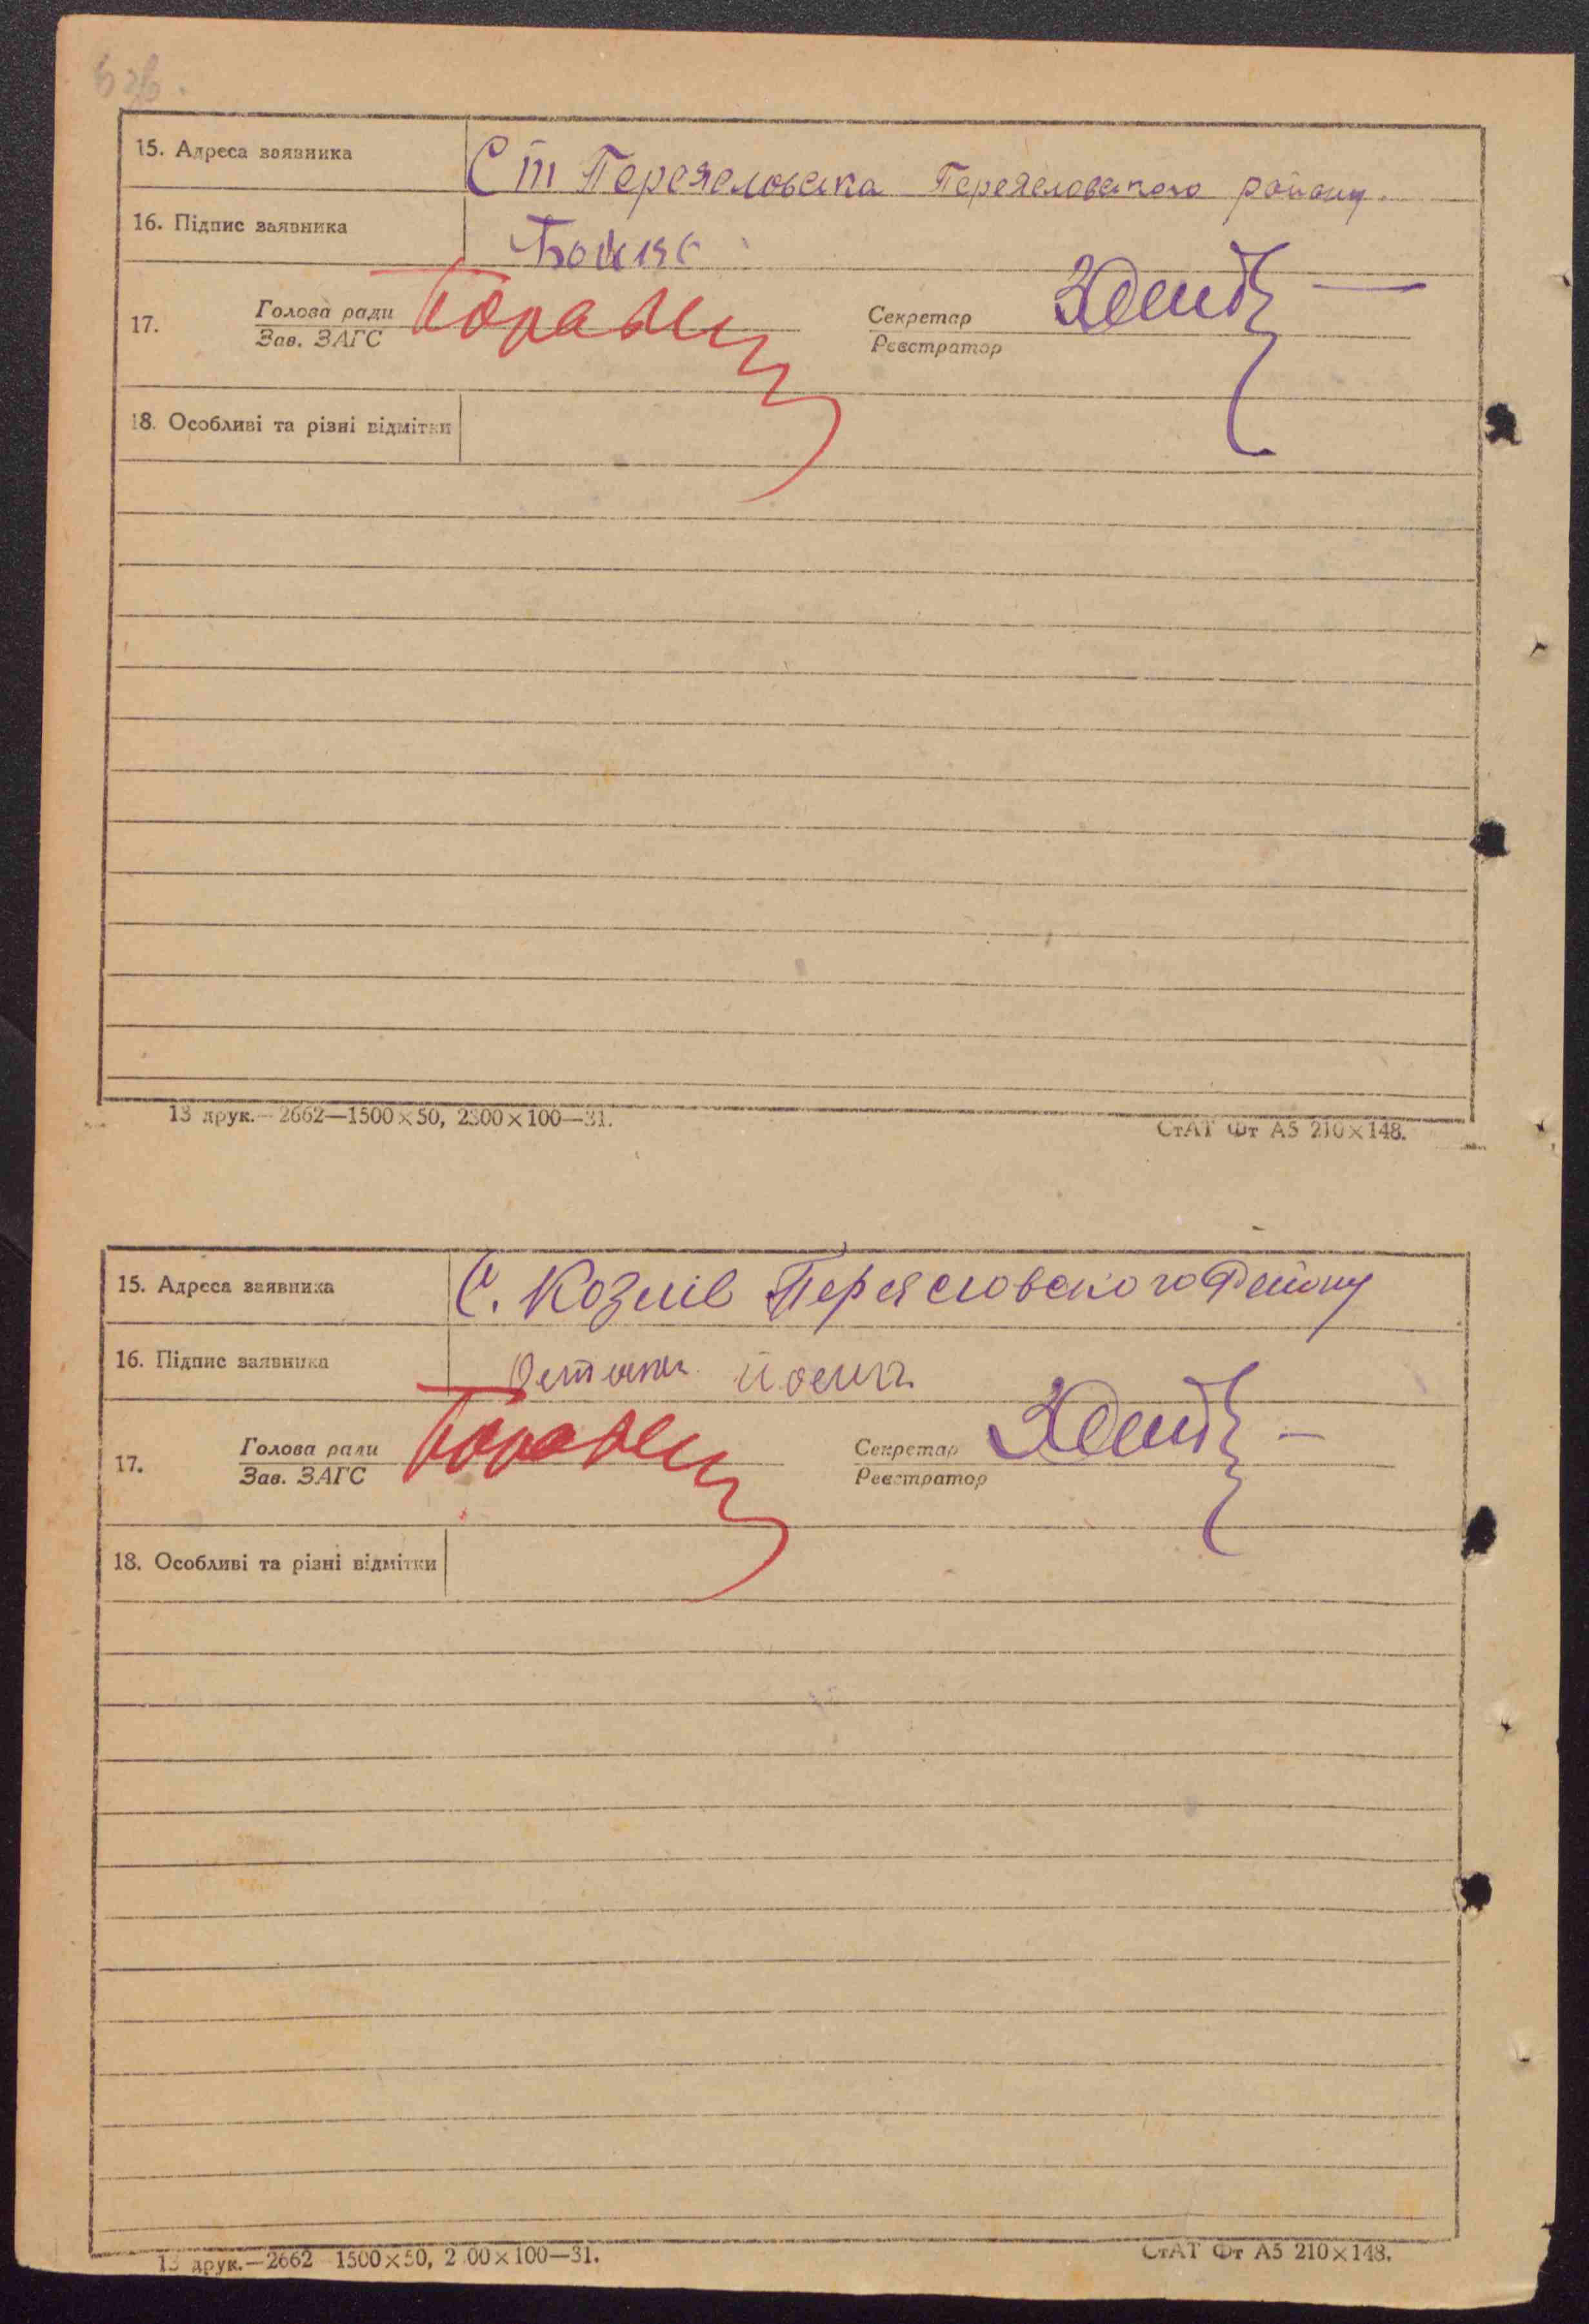 15. Адреса заявника Ст Переяславська Переяславського району
16. Підпис заявника
17. Голова ради Секретар
Зав. ЗАГС Реєстратор
18. Особливі та різні відмітки
13 друк.—2662—1500×50, 2300×100—31. СтАТ Фт А5 210×148.
15. Адреса заявника С. Козлів Переясловського Району
16. Підпис заявника
17. Голова ради Секретар
Зав. ЗАГС Реєстратор
18. Особливі та різні відмітки
13 друк.—2662 1500×50, 2 00×100—31. СтАТ Фт А5 210×148.